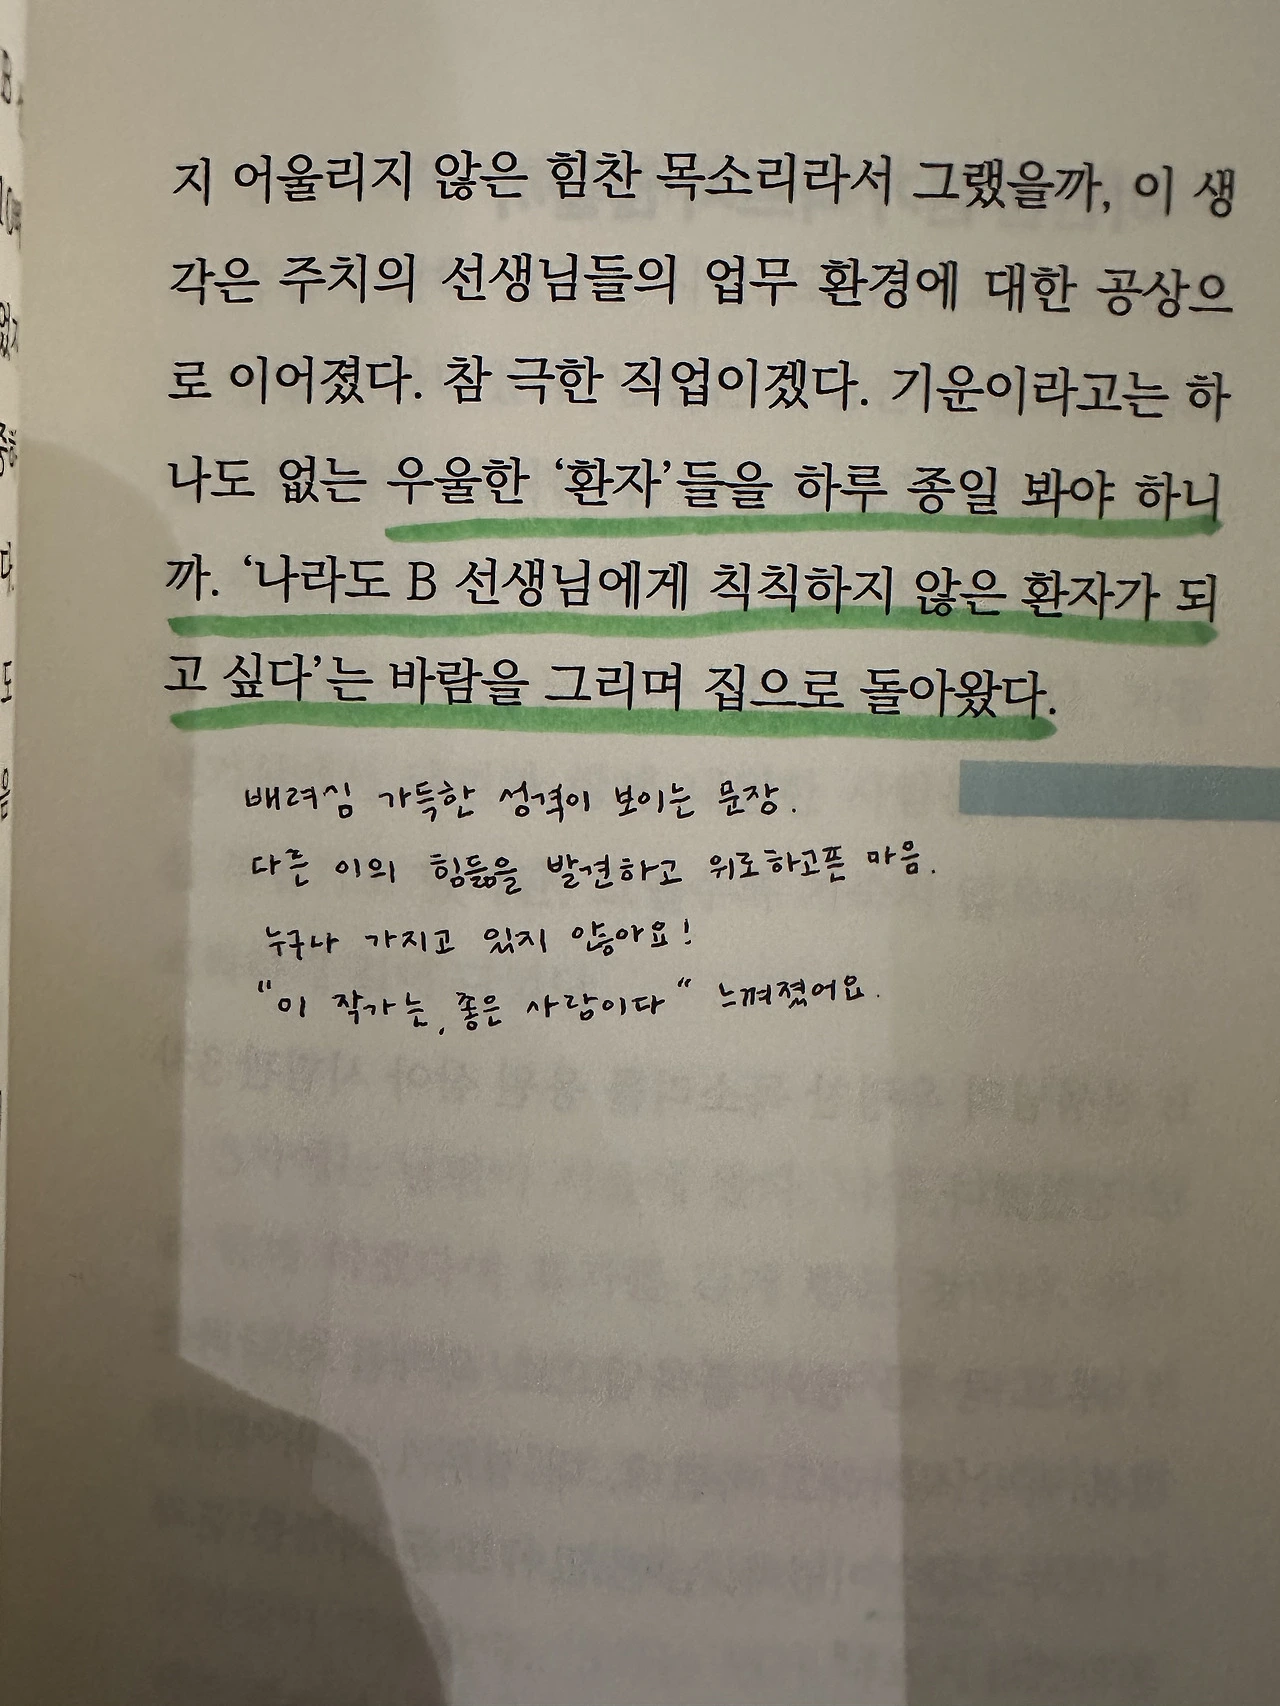 지 어울리지 않은 힘찬 목소리라서 그랬을까, 이 생
각은 주치의 선생님들의 업무 환경에 대한 공상으
로 이어졌다. 참 극한 직업이겠다. 기운이라고는 하
나도 없는 우울한 ‘환자’들을 하루 종일 봐야 하니
까. ‘나라도 B 선생님에게 칙칙하지 않은 환자가 되
고 싶다’는 바람을 그리며 집으로 돌아왔다.
배려심 가득한 성격이 보이는 문장.
다른 이의 힘듦을 발견하고 위로하고픈 마음.
누구나 가지고 있지 않아요!
"이 작가는, 좋은 사람이다" 느껴졌어요.